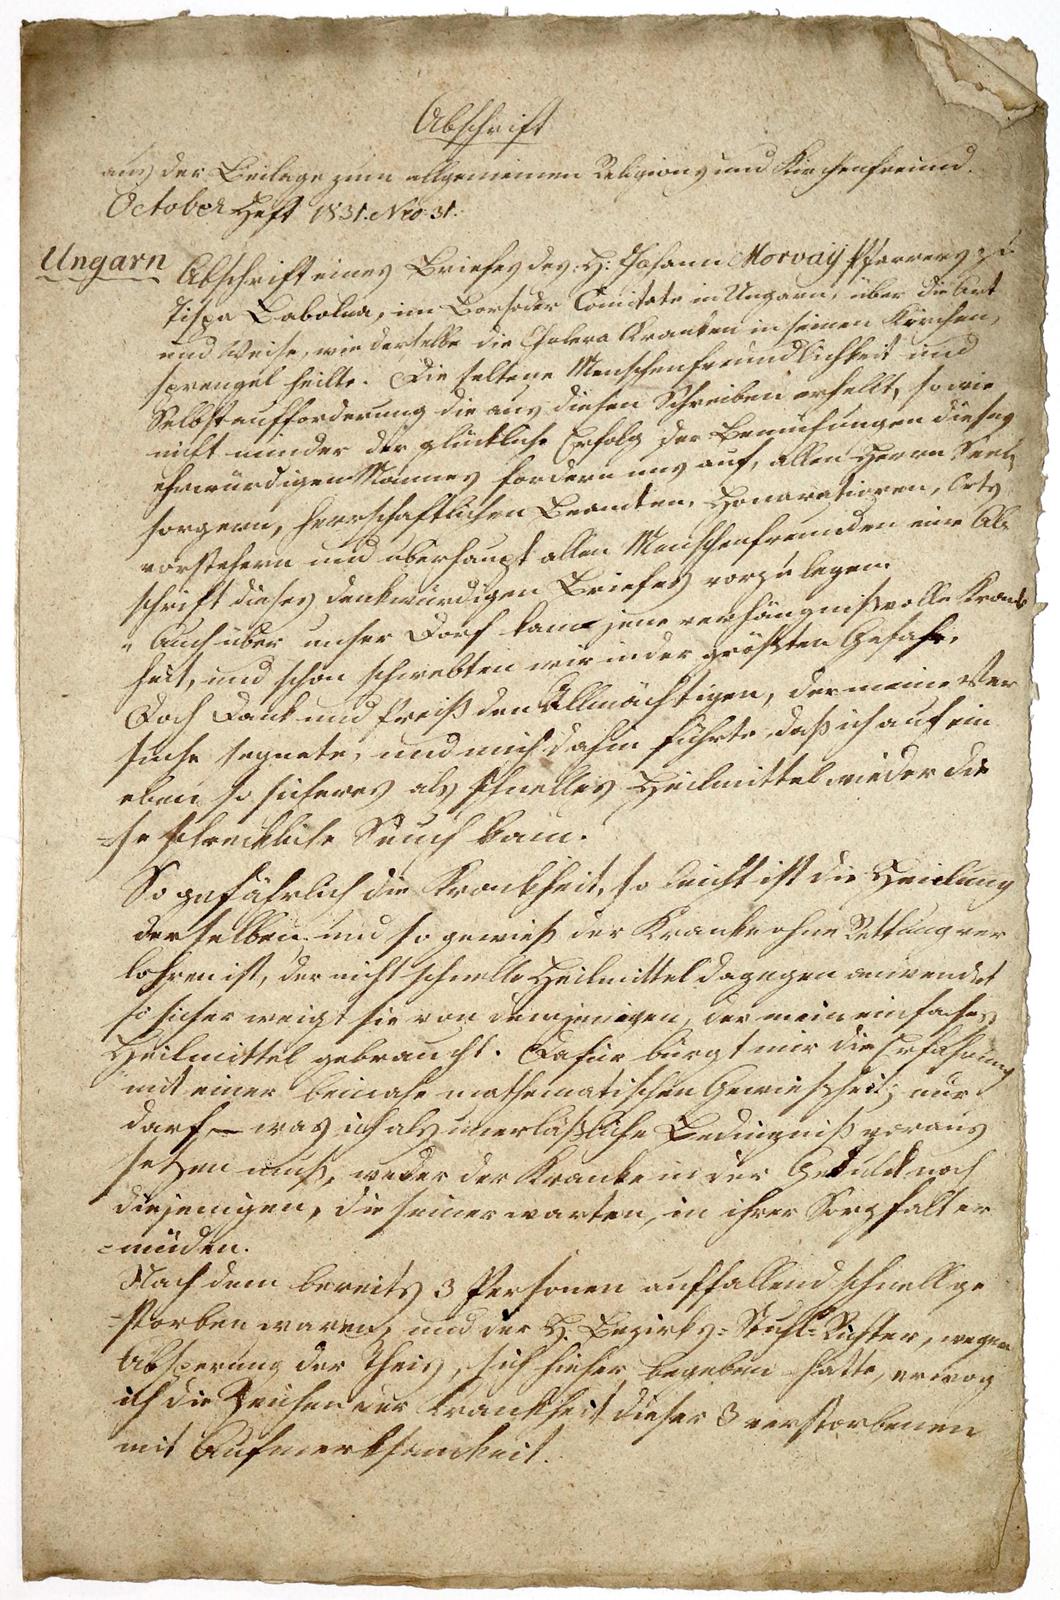 Abschrift
aus der Beilage zum allgemeinen Religions und Kirchenfreund.
October Heft 1831. Nro. 31.
Ungarn Abschrift eines Briefes des H: Johann Morvaÿ Pfarrers zu
Tisza Babolna, im Borsoder Comitate in Ungarn, über die Art
und Weise, wie derselbe die Cholera Kranken in seinem Kirchen,
sprengel heilte. Die seltene Menschenfreundlichkeit und
Selbstaufforderung die aus diesen Schreiben erhellt, so wie
nicht minder der glückliche Erfolg der Bemühungen dieses
ehrwürdigen Mannes fordern uns auf, allen Herrn Seel,
sorgern, herrschaftlichen Beamten, Honoratioren, Orts
vorstehern und überhaupt allen Menschenfreunden eine Ab=
schrift dieses denkwürdigen Briefes vorzulegen.
„ Auch über unser Dorf kam jene verhängnißvolle Krank
heit, und schon schwebten wir in der größten Gefahr.
Doch Dank und Preiß den Allmächtigen, der meine Ver
suche segnete, und mich dahin führte, daß ich auf ein
eben so sicheres als schnelles Heilmittel wieder die
=se schreckliche Seuch kam.
So gefährlich die Krankheit, so leicht ist die Heilung
derselben und so gewieß der Kranke ohne Rettung ver
lohren ist, der nicht schnelle Heilmittel dagegen anwendet
so sicher weigt sie von demjenigen, der mein einfaches
Heilmittel gebraucht. Dafür bürgt mir die Erfahrung
mit einer beinahe mathematischen Gewießheit; nur
darf — was ich als unerläßliche Bedingniß voraus
setzen muß, weder der Kranke in der Geduld noch
diejenigen, die seiner warten, in ihrer Sorgfalt er
=müden.
Nach dem bereits 3 Personen auffallend schnell ge
=storben waren, und der H. Bezirks=Stuhl=Richter, wegen
Absperung der Theis, sich hieher begeben hatte, erwog
ich die Zeichen der Krankheit dieser 3 verstorbenen
mit Aufmerksamkeit.